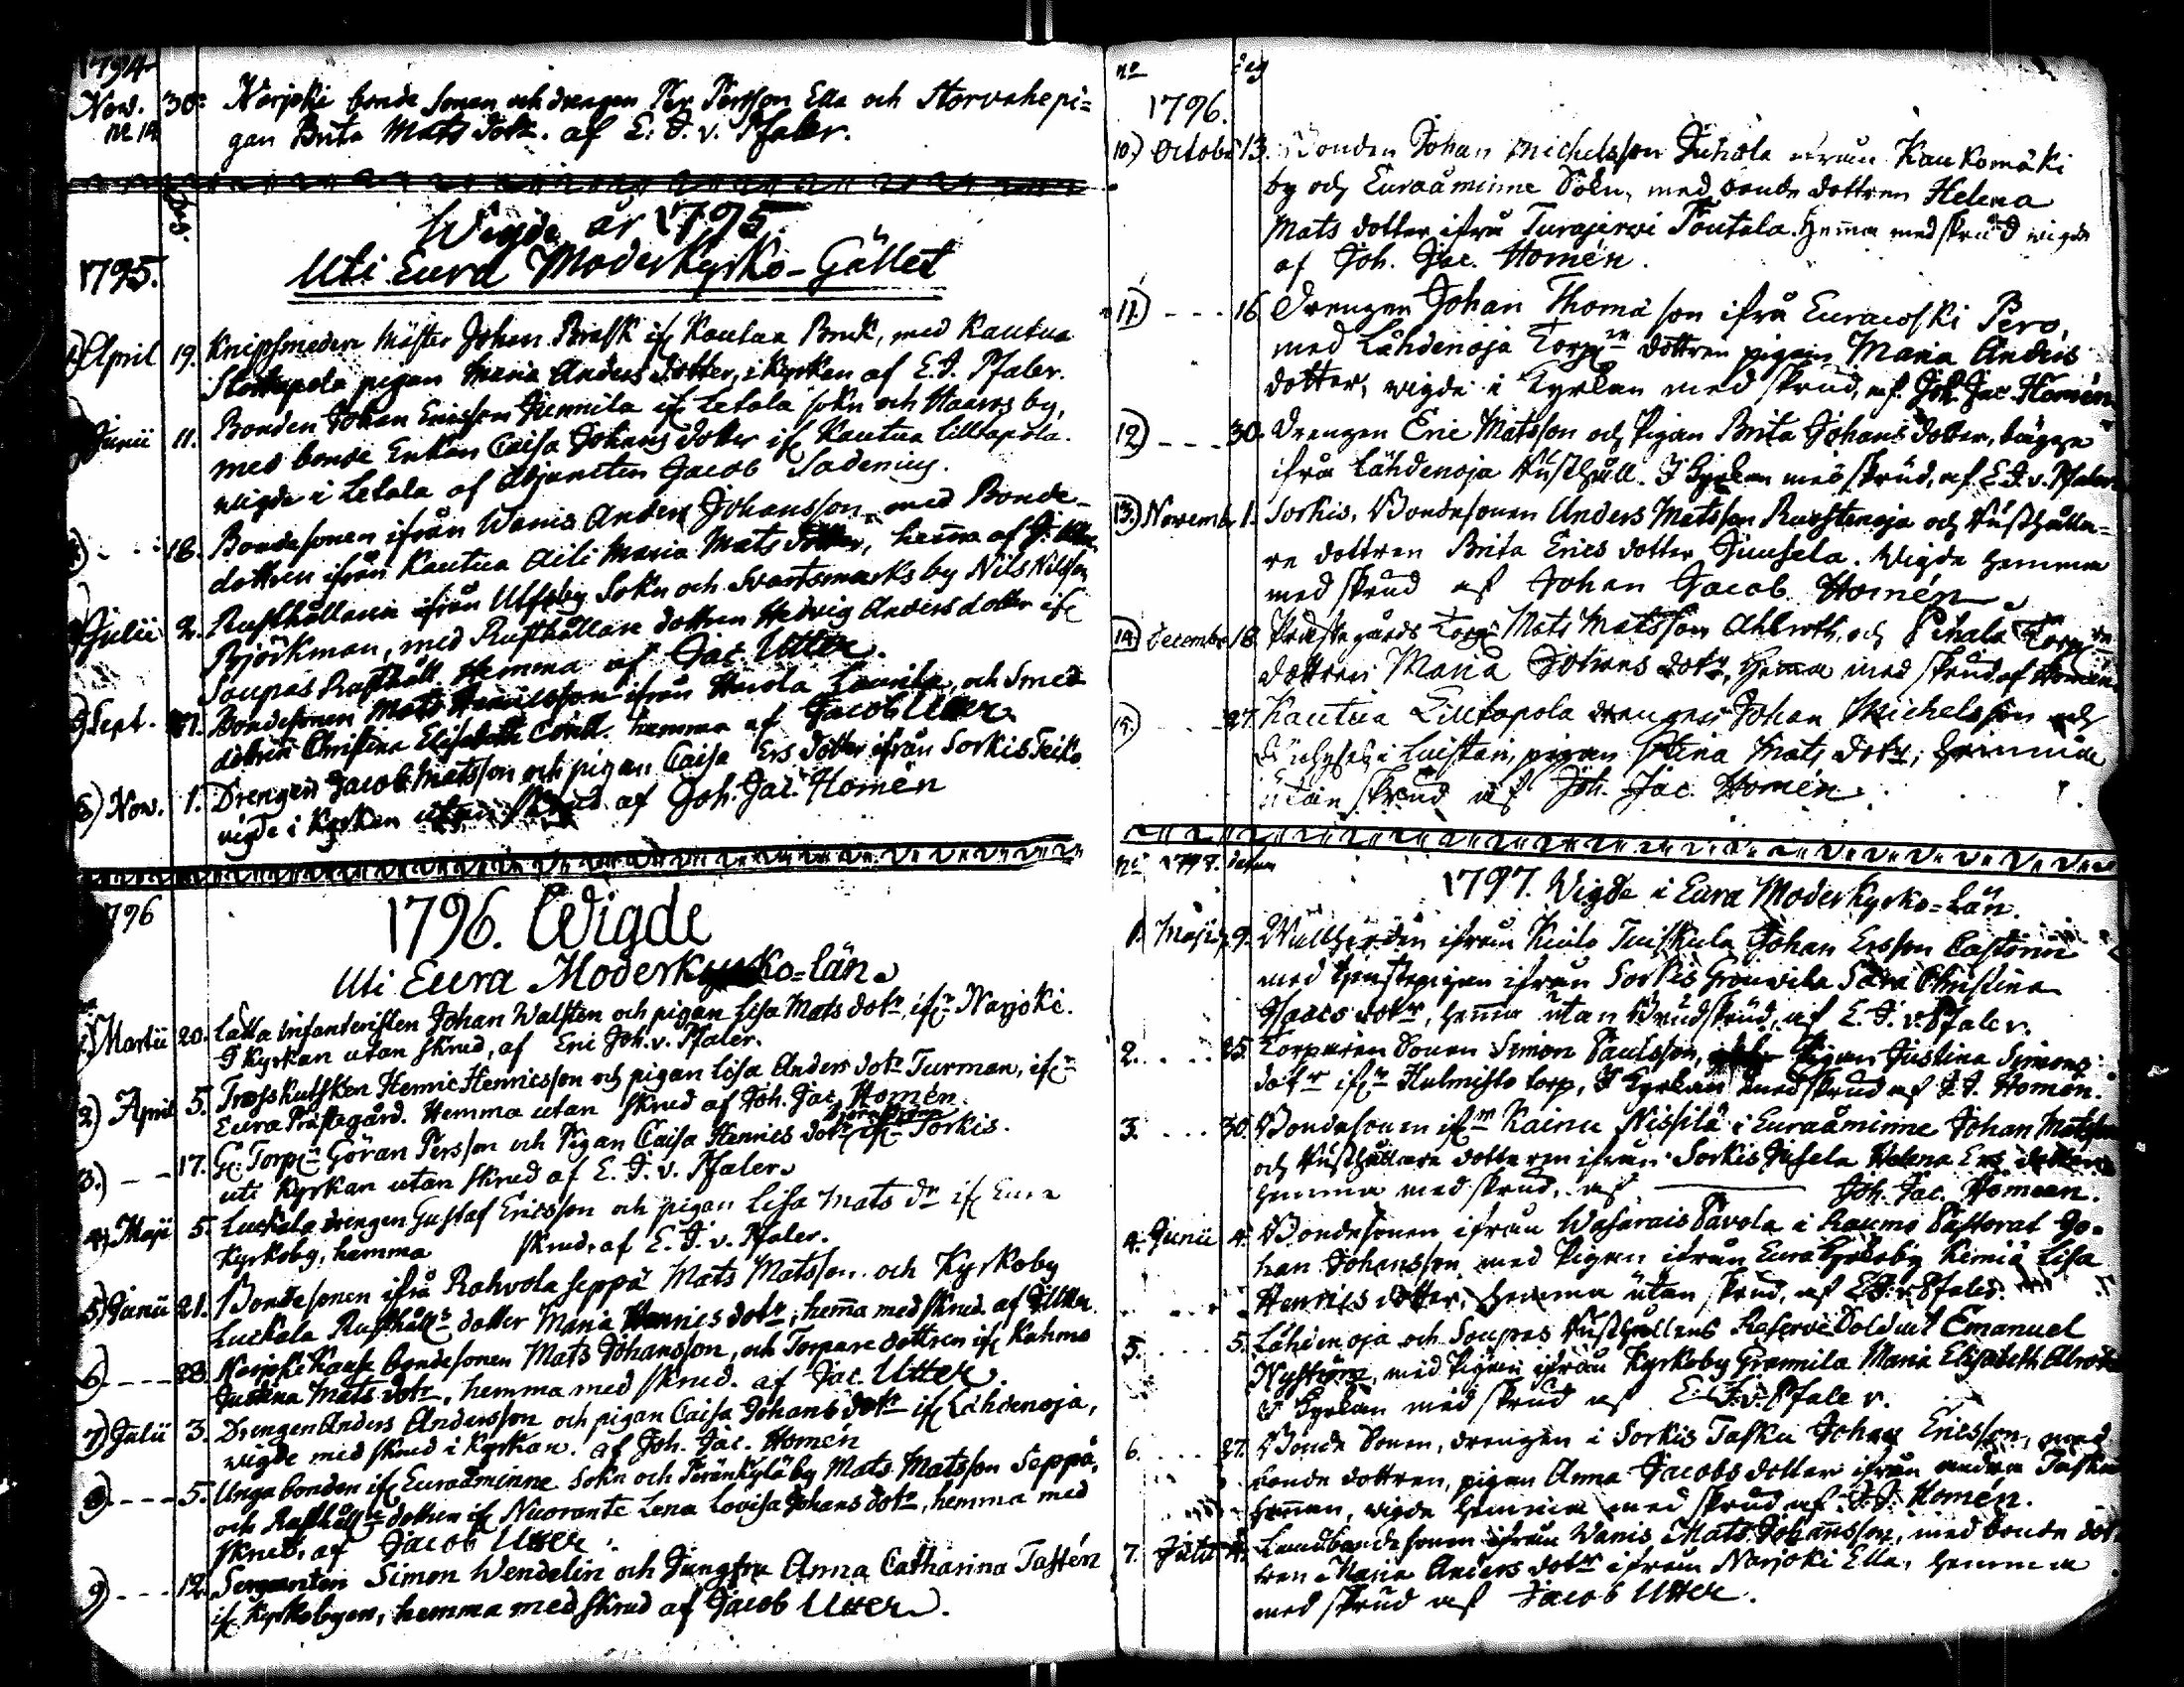 1794
Nov. 30. Norjoki bonde sonen och drengen Per Persson Ella och Storvahe pi=
gan Brita Mats dotr. af E. J. v. Pfaler.
Wigde år 1795.
1795. Uti Eura Moderkyrko-Gället
April 19. Knipsmeden Mäster Johan Brask if Kautua Bruk, med Kautua
pigan Maria Anders dotter, i Kyrkan af E. J. Pfaler.
Junii 11. Bonden Johan Ericsson Junnila if Letala sokn och Haaros by,
med bonde Enkan Caisa Johans dotter if Kautua Lilltapola.
wigde i Letala af Adjuncten Jacob Sadenius.
18. Bondesonen ifrån Wanis Anders Johansson, med Bonde-
dottren ifrån Kautua Aili Maria Mats dotter, hema af J.
Julii 2. Rusthållaren ifrån Ulfsby Sokn och Svartsmarks by Nils Nilsson
Björkman, med Rusthållare dottren Hedvig Anders dotter if
Soupas Rusthåll. Hemma af Jac Utter.
Sept. Bondesonen Mats Henricsson ifrån och Smed
dottren Christina Elisabeth hemma af Jacob Utter
6) Nov. 1. Drengen Jacob Matsson och pigan Caisa Ers dotter ifrån Sorkis Seiko
vigde i Kyrkan utan skrud af Joh. Jac. Homén
1796 1796. Wigde
Uti Eura Moderkyrko=län.
Martii 20. Lätta Infanteristen Johan Walsten och pigan Lisa Mats dotr, ifr Narjoki.
I Kyrkan utan skrud, af Eric Joh. v. Pfaler.
2) April 5. Henric Henricsson och pigan Lisa Anders dotr Turman, ifr
Eura Prästegård. Hemma utan skrud af Joh. Jac. Homén.
3.) - - 17. Torp Göran Persson och Pigan Caisa Henrics dotr ifr Sorkis.
uti Kyrkan utan skrud af E. J. v. Pfaler.
4) Maji 5. Luckala drengen Gustaf Ericsson och pigan Lisa Mats dr if Eura
Kyrkoby, hemma skrud, af E. J. v. Pfaler.
5) Junii 21. Bondesonen ifrå Rahvola Seppä Mats Matsson och Kyrkoby
Luckala Rusthålls dotter Maria Henrics dotr, hema med skrud af J Utter.
6) - - - - 28. Narjoki bondesonen Mats Johansson, och Torpare dottren if Kahmo
Justina Mats dotr, hemma med skrud. af Jac. Utter.
7) Julii 3. Drengen Anders Andersson och pigan Caisa Johans dotr if Lähdenoja,
wigde med skrud i kyrkan. af Joh. Jac. Homén
8. - - - - 5. Unga bonden if Euraåminne Sokn och Peränkylä by Mats Matsson Seppä,
och Rusthåll dottren if Nuoranto Lena Lovisa Johans dotr, hemma med
skrud, af Jacob Utter.
9) - - - 12. Sergeanten Simon Wendelin och Jungfru Anna Catharina Tastén
if Kyrkobyen, hemma med skrud af Jacob Utter.
no dag
1796.
10.) Octob. 13. Bonden Johan Michelsson Juhola ifrån Kaukomäki
by och Euraåminne Sokn, med bonde dottren Helena
Mats dotter ifrå Turajerwi Poutala. Hema med skrud wigde
af Joh. Jac. Homén.
11) - - - 16. Drengen Johan Thomæson ifrå Euracoski Pero,
med Lähdenoja Torp dottren pigan Maria Anders
dotter, wigde i Kyrkan med skrud, af Joh. Jac. Homén.
12) - - - 30. Drengen Eric Matsson och Pigan Brita Johans dotter, bägge
ifrå Lähdenoja Rusthåll. I Kyrkan med skrud, af E J v. Pfaler.
13.) Novemb. 1. Sorkis, Bondesonen Anders Matsson Ruostenoja och Rusthålla-
re dottren Brita Erics dotter Juusela. Wigde hemma
med skrud af Johan Jacob Homén.
14) Decembr 18. Prästegårds Torp Mats Matsson Ahlroth, och Pihala Torp
dottren Maria Johans dotr, Hema med skrud af Homén.
15) - - - 27. Kautua Lilltapola drengen Johan Michelsson och
i Luistari, pigan Stina Mats dotr, hemma
utan skrud af Joh. Jac. Homén.
no 1797. datum
1797. Wigde i Eura Moderkyrko=Län.
1. Maji 9. ifrån Kiulo Tuiskula Johan Ersson Castorin
med tjenstepigan ifrån Sorkis Grouwila Sara Christina
Isaacs dotr, hema utan Brudskrud, af E. J. v. Pfaler.
2. . . . . 25. Torparen Sonen Simon Paulsson, Pigan Justina Simons
dotr ifr Hulmisto torp, I Kyrkan med skrud af J. J. Homén.
3. . . . 30. Bondesonen ifrn Kainu Nissilä i Euraåminne Johan Matsson
och Rusthållare dotteren ifrån Sorkis Jusela Helena Ers dotter
hemma med skrud, af Joh. Jac. Homén.
4. Junii 4. Bondesonen ifrån Wasarais Pavola i Raumo Pastorat Jo-
han Johansson med Pigan ifrån Eura Kyrkoby Kimiä Lisa
Henrics dotter, hemma utan skrud, af E J. v. Pfaler.
5. . . . . 5. Lähdenoja och Soupas Rusthållens Reserve Soldat Emanuel
Nyström, med Pigan ifrån Kyrkoby Gramila Maria Elisabeth
I Kyrkan med skrud af E. J. v. Pfaler.
6. . . . . 27. Bonde Sonen, drengen i Sorkis Tasku Johan Ericsson, med
bonde dottren, pigan Anna Jacobs dotter ifrån andra Tasku
heman, wigde hemma med skrud af J. J. Homén.
7. Julii 4. Landbonde sonen ifrån Wanis Mats Johansson, med bonde dot-
tren Maria Anders dotr ifrån Narjoki Ella, hemma
med skrud af Jacob Utter.